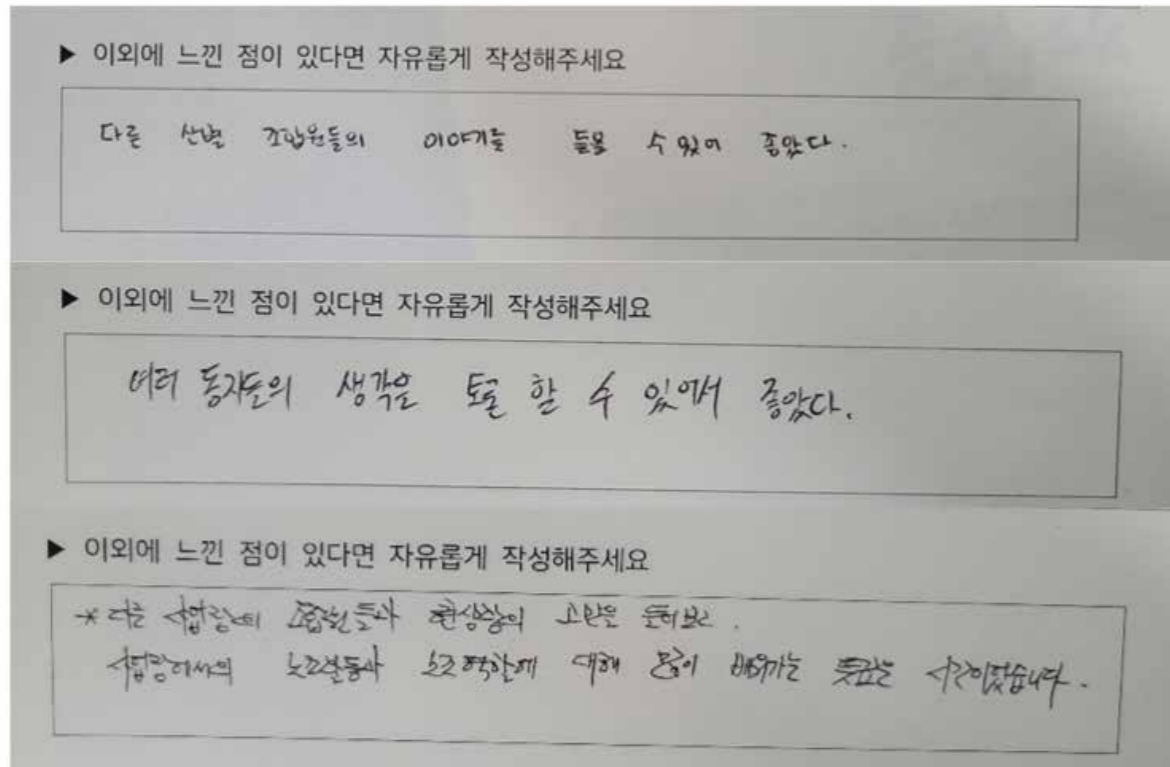 ▶ 이외에 느낀 점이 있다면 자유롭게 작성해주세요
다른 산별 조합원들의 이야기를 들을 수 있어 좋았다.
▶ 이외에 느낀 점이 있다면 자유롭게 작성해주세요
여러 동지들의 생각을 토론 할 수 있어서 좋았다.
▶ 이외에 느낀 점이 있다면 자유롭게 작성해주세요
* 다른 사업장의 조합원들과 고민을 들어보고.
사업장에서의 노조활동과 노조역할에 대해 많이 배워가는 뜻깊은 시간이었습니다.